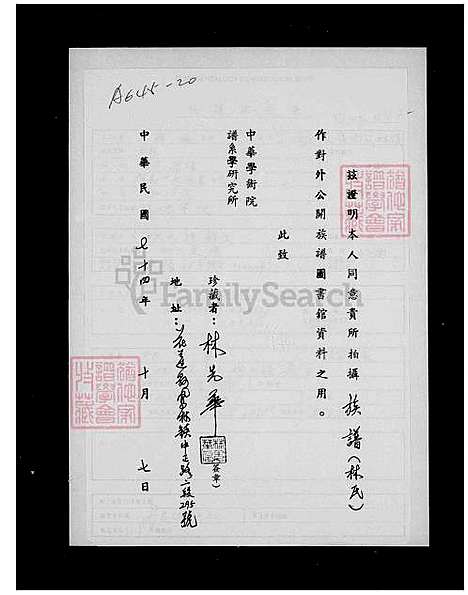 A645-20
茲證明本人同意貴所拍攝族譜(林氏)
作對外公開族譜圖書館資料之用。
此致
中華學術院
譜系學研究所
珍藏者：林先華
(簽章)
地址：花蓮縣鳳林鎮中正路二段295號
中華民國七十四年十月七日
FamilySearch